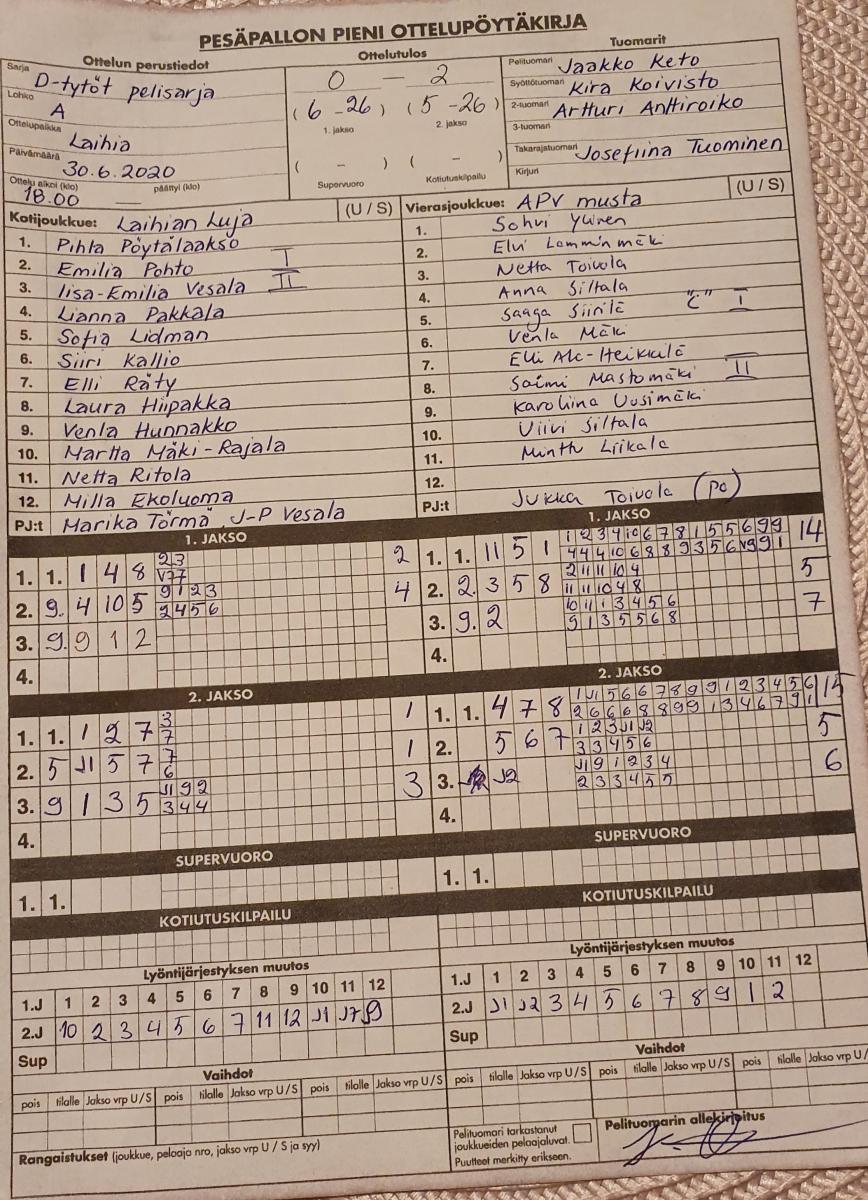 PESÄPALLON PIENI OTTELUPÖYTÄKIRJA
Ottelun perustiedot
Sarja D-tytöt pelisarja
Lohko A
Ottelupaikka Laihia
Päivämäärä 30.6.2020
Ottelu alkoi (klo) päättyi (klo)
18.00 —
Ottelutulos
0 - 2
( 6 - 26 ) ( 5 - 26 )
1. jakso 2. jakso
( - ) ( - )
Supervuoro Kotiutuskilpailu
Tuomarit
Pelituomari Jaakko Keto
Syöttötuomari Kira Koivisto
2-tuomari Artturi Anttiroiko
3-tuomari
Takarajatuomari Josefiina Tuominen
Kirjuri
Kotijoukkue: Laihian Luja (U / S)
1. Pihla Pöytälaakso
2. Emilia Pohto I
3. Iisa-Emilia Vesala II
4. Lianna Pakkala
5. Sofia Lidman
6. Siiri Kallio
7. Elli Räty
8. Laura Hiipakka
9. Venla Hunnakko
10. Martta Mäki-Rajala
11. Netta Ritola
12. Milla Ekoluoma
PJ:t Marika Törmä, J-P Vesala
Vierasjoukkue: APV musta (U / S)
1. Sohvi Ylinen
2. Elvi Lamminmäki
3. Netta Toivola
4. Anna Siltala
5. Saaga Siirilä "C" I
6. Venla Mäki
7. Elli Ala-Heikkilä
8. Saimi Mastomäki II
9. Karoliina Uusimäki
10. Viivi Siltala
11. Minttu Liikala
12.
PJ:t Jukka Toivola (pc)
1. JAKSO
1. 1. 1 4 8 2 3 2
V 7 7
2. 9. 4 10 5 9 1 2 3 4
2 4 5 6
3. 9. 9 1 2
4.
1. JAKSO
1. 1. 11 5 1 1 2 3 4 10 6 7 8 1 5 5 6 9 9 14
4 4 4 10 6 8 8 9 3 5 6 V9 9 1
2. 2. 3 5 8 2 11 11 10 4 5
11 11 10 4 8
3. 9. 2 10 11 1 3 4 5 6 7
9 1 3 5 5 6 8
4.
2. JAKSO
1. 1. 1 2 7 3 1
7
2. 5 J1 5 7 7 1
6
3. 9 1 3 5 J1 9 2 3
3 4 4
4.
2. JAKSO
1. 1. 4 7 8 1 J1 5 6 6 7 8 9 9 1 2 3 4 5 6 15
2 6 6 6 8 8 9 9 1 3 4 6 7 9 1
2. 5 6 7 1 2 3 J1 J2 5
3 3 4 5 6
3. J2 J1 9 1 2 3 4 6
2 3 3 4 5 5
4.
SUPERVUORO
1. 1.
SUPERVUORO
1. 1.
KOTIUTUSKILPAILU
KOTIUTUSKILPAILU
Lyöntijärjestyksen muutos
1.J 1 2 3 4 5 6 7 8 9 10 11 12
2.J 10 2 3 4 5 6 7 11 12 J1 9
Sup
Lyöntijärjestyksen muutos
1.J 1 2 3 4 5 6 7 8 9 10 11 12
2.J J1 J2 3 4 5 6 7 8 9 1 2
Sup
Vaihdot
pois tilalle Jakso vrp U / S pois tilalle Jakso vrp U / S pois tilalle Jakso vrp U / S
Vaihdot
pois tilalle Jakso vrp U / S pois tilalle Jakso vrp U / S pois tilalle Jakso vrp U / S
Rangaistukset (joukkue, pelaaja nro, jakso vrp U / S ja syy)
Pelituomari tarkastanut
joukkueiden pelaajaluvat.
Puutteet merkitty erikseen.
Pelituomarin allekirjoitus